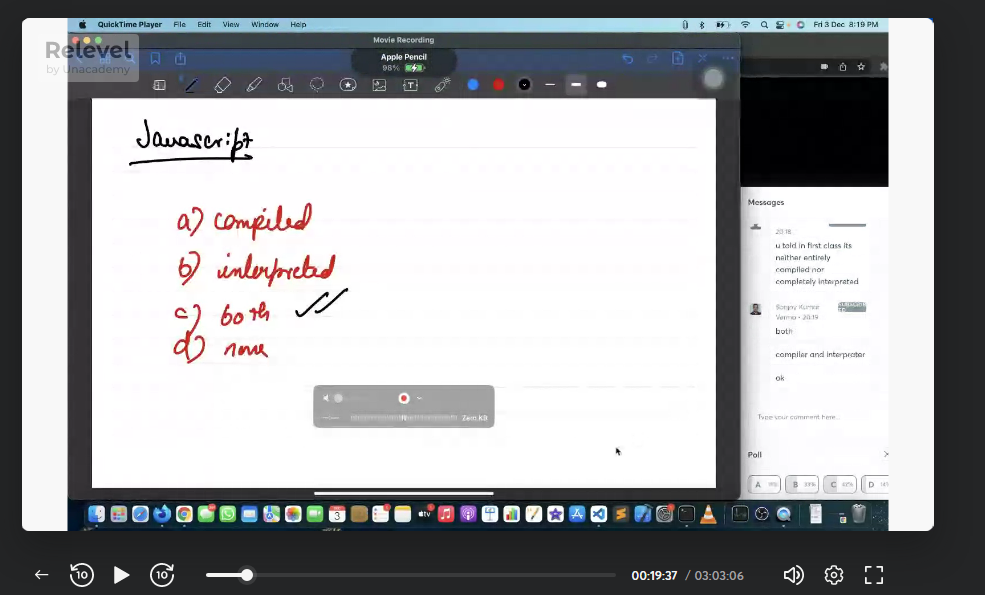 QuickTime Player File Edit View Window Help Fri 3 Dec 8:19 PM
Movie Recording
Relevel
by Unacademy
Apple Pencil
98%
Javascript
a) compiled
b) interpreted
c) both
d) none
Zero KB
Messages
20:18
u told in first class its
neither entirely
compiled nor
completely interpreted
Sanjay Kumar
Verma • 20:19
both
compiler and interprater
ok
Type your comment here...
Poll
A B C D
10 10 00:19:37 / 03:03:06